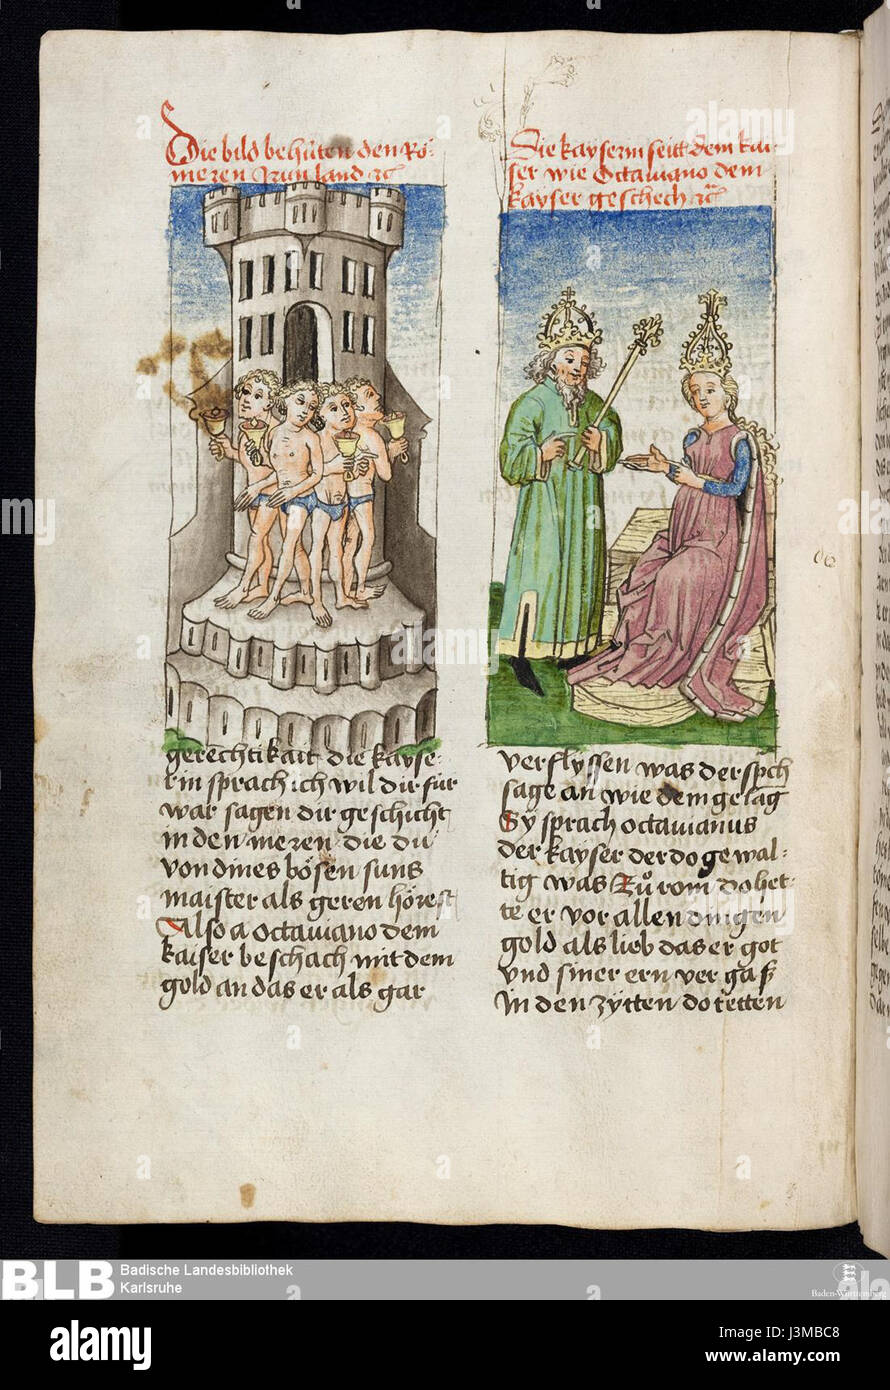 Die bild behůten den Rö-
meren Irun land etc
gerechtikait die kayse-
rin sprach ich wil dir für
war sagen dir geschicht
in den meren die du
von dines bösen suns
maister als geren hörest
Also a octauiano dem
kaiser beschach mit dem
gold an das er als gar
Die kayserin seitt dem kai-
ser wie Octauiano dem
kayser geschech etc
verflyssen was der spch
sage an wie dem gesag
Sÿ sprach octauianus
der kayser der do gewal-
tig was Zů rom do het-
te er vor allen dingen
gold als lieb das er got
vnd siner ern vergaß
In den zÿtten do tetten
BLB
Badische Landesbibliothek
Karlsruhe
Baden-Württemberg
alamy
a
alamy
Image ID: J3MBC8
www.alamy.com